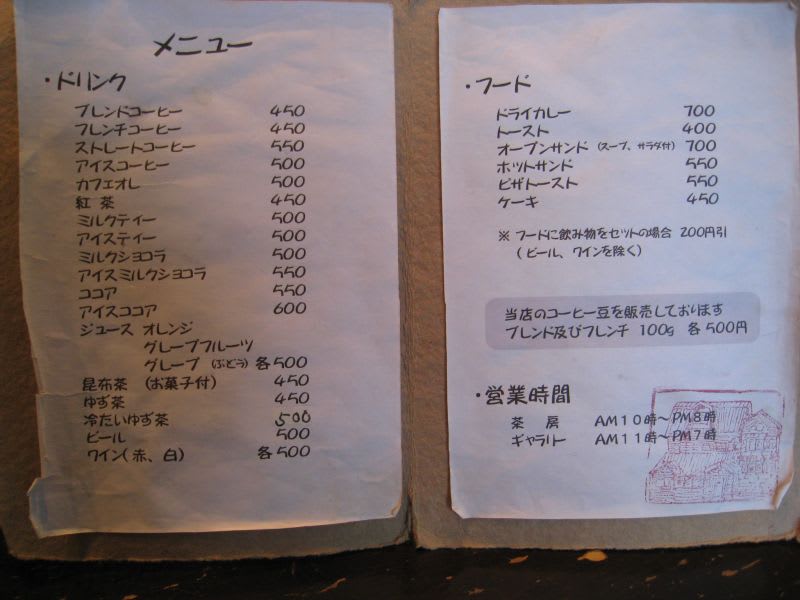 メニュー
・ドリンク
ブレンドコーヒー 450
フレンチコーヒー 450
ストレートコーヒー 550
アイスコーヒー 500
カフェオレ 500
紅茶 450
ミルクティー 500
アイスティー 500
ミルクショコラ 500
アイスミルクショコラ 550
ココア 550
アイスココア 600
ジュース オレンジ
グレープフルーツ
グレープ (ぶどう) 各500
昆布茶 (お菓子付) 450
ゆず茶 450
冷たいゆず茶 500
ビール 500
ワイン(赤、白) 各500
・フード
ドライカレー 700
トースト 400
オープンサンド (スープ、サラダ付) 700
ホットサンド 550
ピザトースト 550
ケーキ 450
※ フードに飲み物をセットの場合 200円引
(ビール、ワインを除く)
当店のコーヒー豆を販売しております
ブレンド及びフレンチ 100g 各500円
・営業時間
茶房 AM10時〜PM8時
ギャラリー AM11時〜PM7時